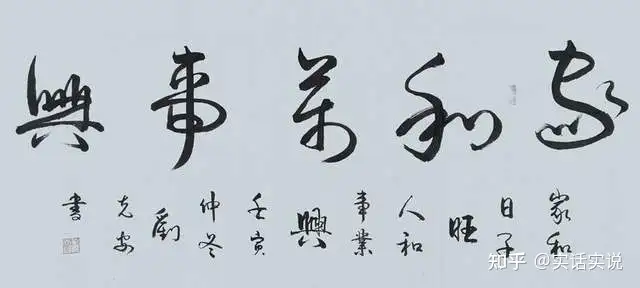 家和萬事興
家和
日子
旺
人和
事業
興
壬寅
仲冬
劉
克安
書
知乎 @实话实说